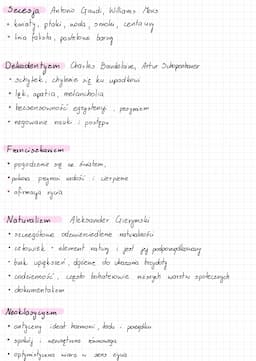 Secesja Antonio Gaudi, Williams Morris
• kwiaty, ptaki, woda, smoki, centaury
• linia falista, pastelowe barwy
Dekadentyzm Charles Baudelaire, Artur Schopenhauer
• schyłek, chylenie się ku upadkowi
• lęk, apatia, melancholia
• bezsensowność egzystencji, pesymizm
• negowanie nauki i postępu
Franciszkanizm
• pogodzenie się ze światem,
• pokora, przyjmuje radość i cierpienie
• afirmacja życia
Naturalizm Aleksander Gierymski
• szczegółowe odzwierciedlenie naturalności
• człowiek - element natury i jest jej podporządkowany
• brak upiększeń, dążenie do ukazania brzydoty
• codzienność, często bohaterowie niższych warstw społecznych
• dokumentalizm
Neoklasycyzm
• antyczny ideał harmonii, ładu i porządku
• spokój i wewnętrzna równowaga
• optymistyczna wiara w sens życia